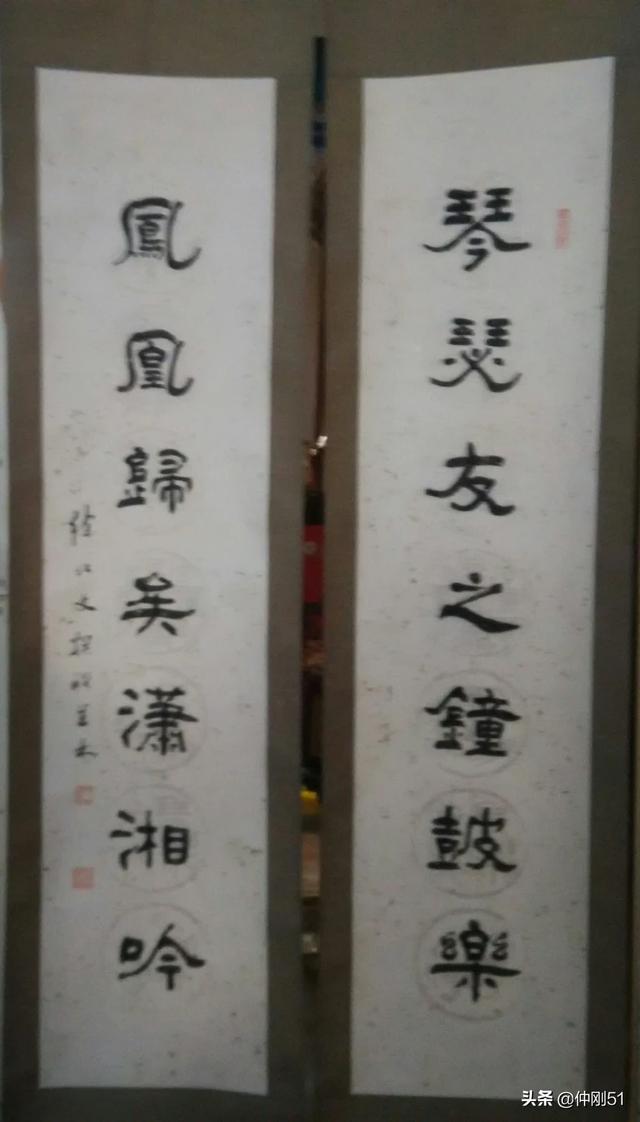 琴瑟友之鐘鼓樂
鳳凰歸矣瀟湘吟
头条 @仲刚51